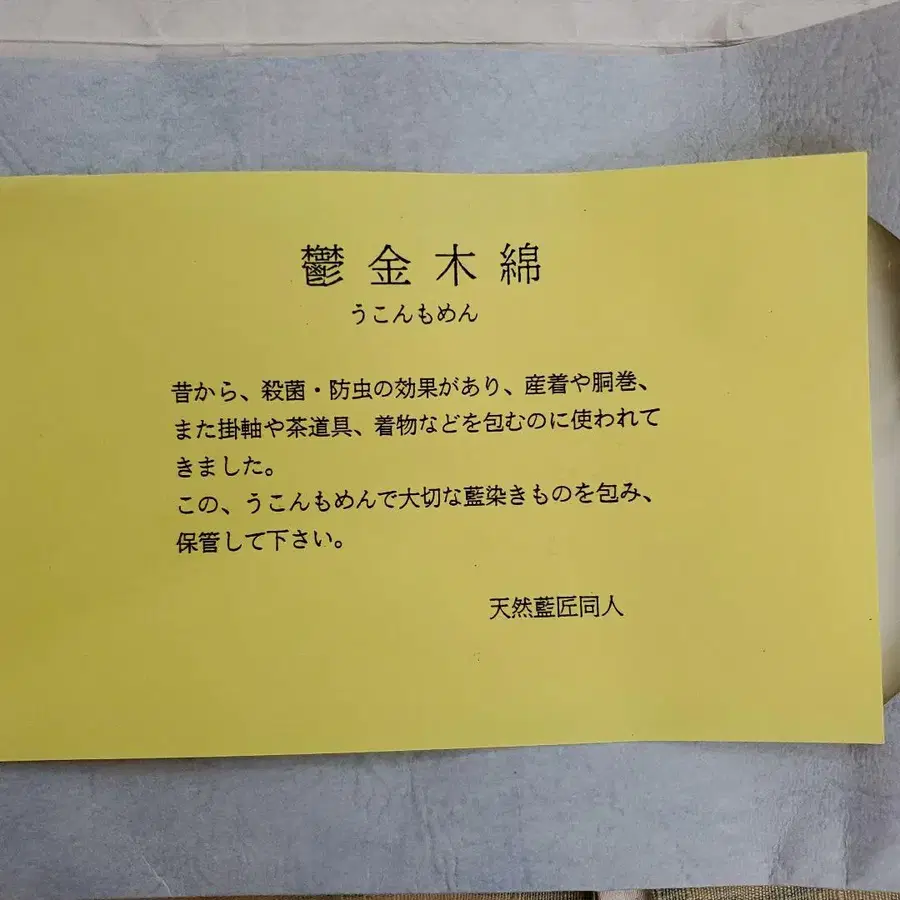 鬱金木綿
うこんもめん
昔から、殺菌・防虫の効果があり、産着や胴巻、
また掛軸や茶道具、着物などを包むのに使われて
きました。
この、うこんもめんで大切な藍染きものを包み、
保管して下さい。
天然藍匠同人